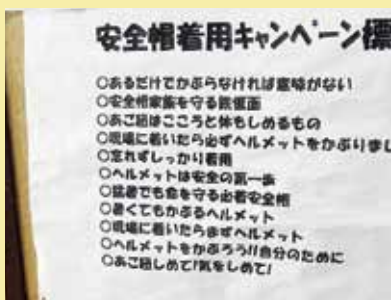 安全帽着用キャンペーン標
○あるだけでかぶらなければ意味がない
○安全帽家族を守る鉄仮面
○あご紐はこころと体もしめるもの
○現場に着いたら必ずヘルメットをかぶりまし
○忘れずしっかり着用
○ヘルメットは安全の第一歩
○猛暑でも命を守る必着安全帽
○暑くてもかぶるヘルメット
○現場に着いたらまずヘルメット
○ヘルメットをかぶろう!!自分のために
○あご紐しめて!気をしめて!